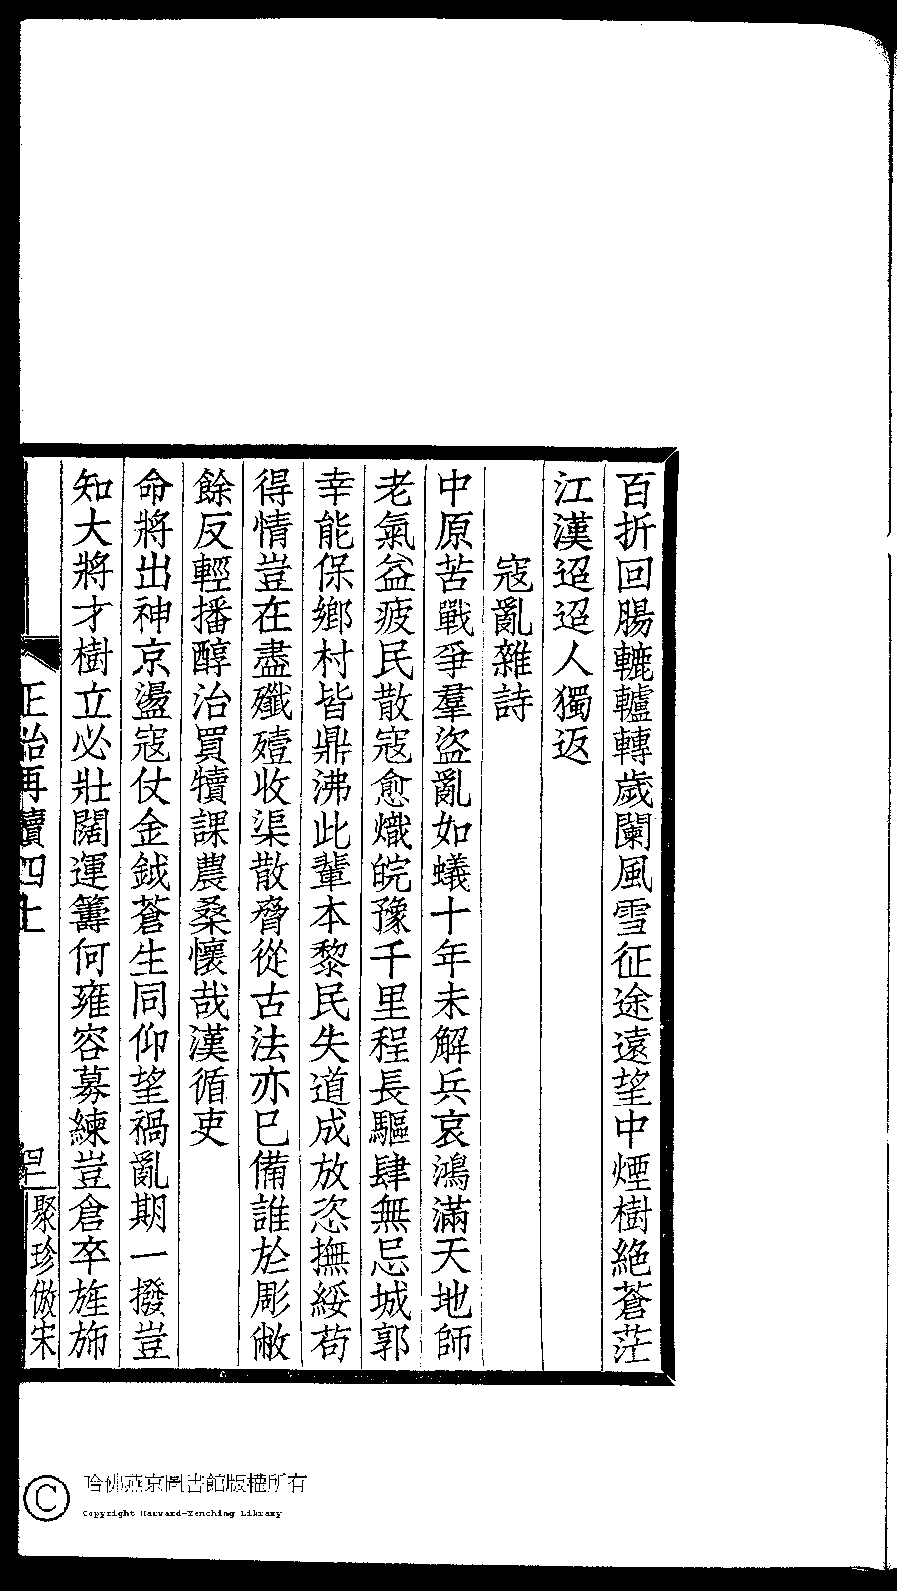 百折回腸轆轤轉歲闌風雪征途遠望中煙樹絶蒼茫
江漢迢迢人獨返
寇亂雜詩
中原苦戰爭羣盜亂如蟻十年未解兵哀鴻滿天地師
老氣益疲民散寇愈熾皖豫千里程長驅肆無忌城郭
幸能保鄉村皆鼎沸此輩本黎民失道成放恣撫綏苟
得情豈在盡殲殪收渠散脅從古法亦已備誰於彫敝
餘反輕播醇治買犢課農桑懷哉漢循吏
命將出神京盪寇仗金鉞蒼生同仰望禍亂期一撥豈
知大將才樹立必壯闊運籌何雍容募練豈倉卒旌斾
正始再續四上
聚珍倣宋
哈佛燕京圖書館版權所有
Copyright Harvard-Yenching Library